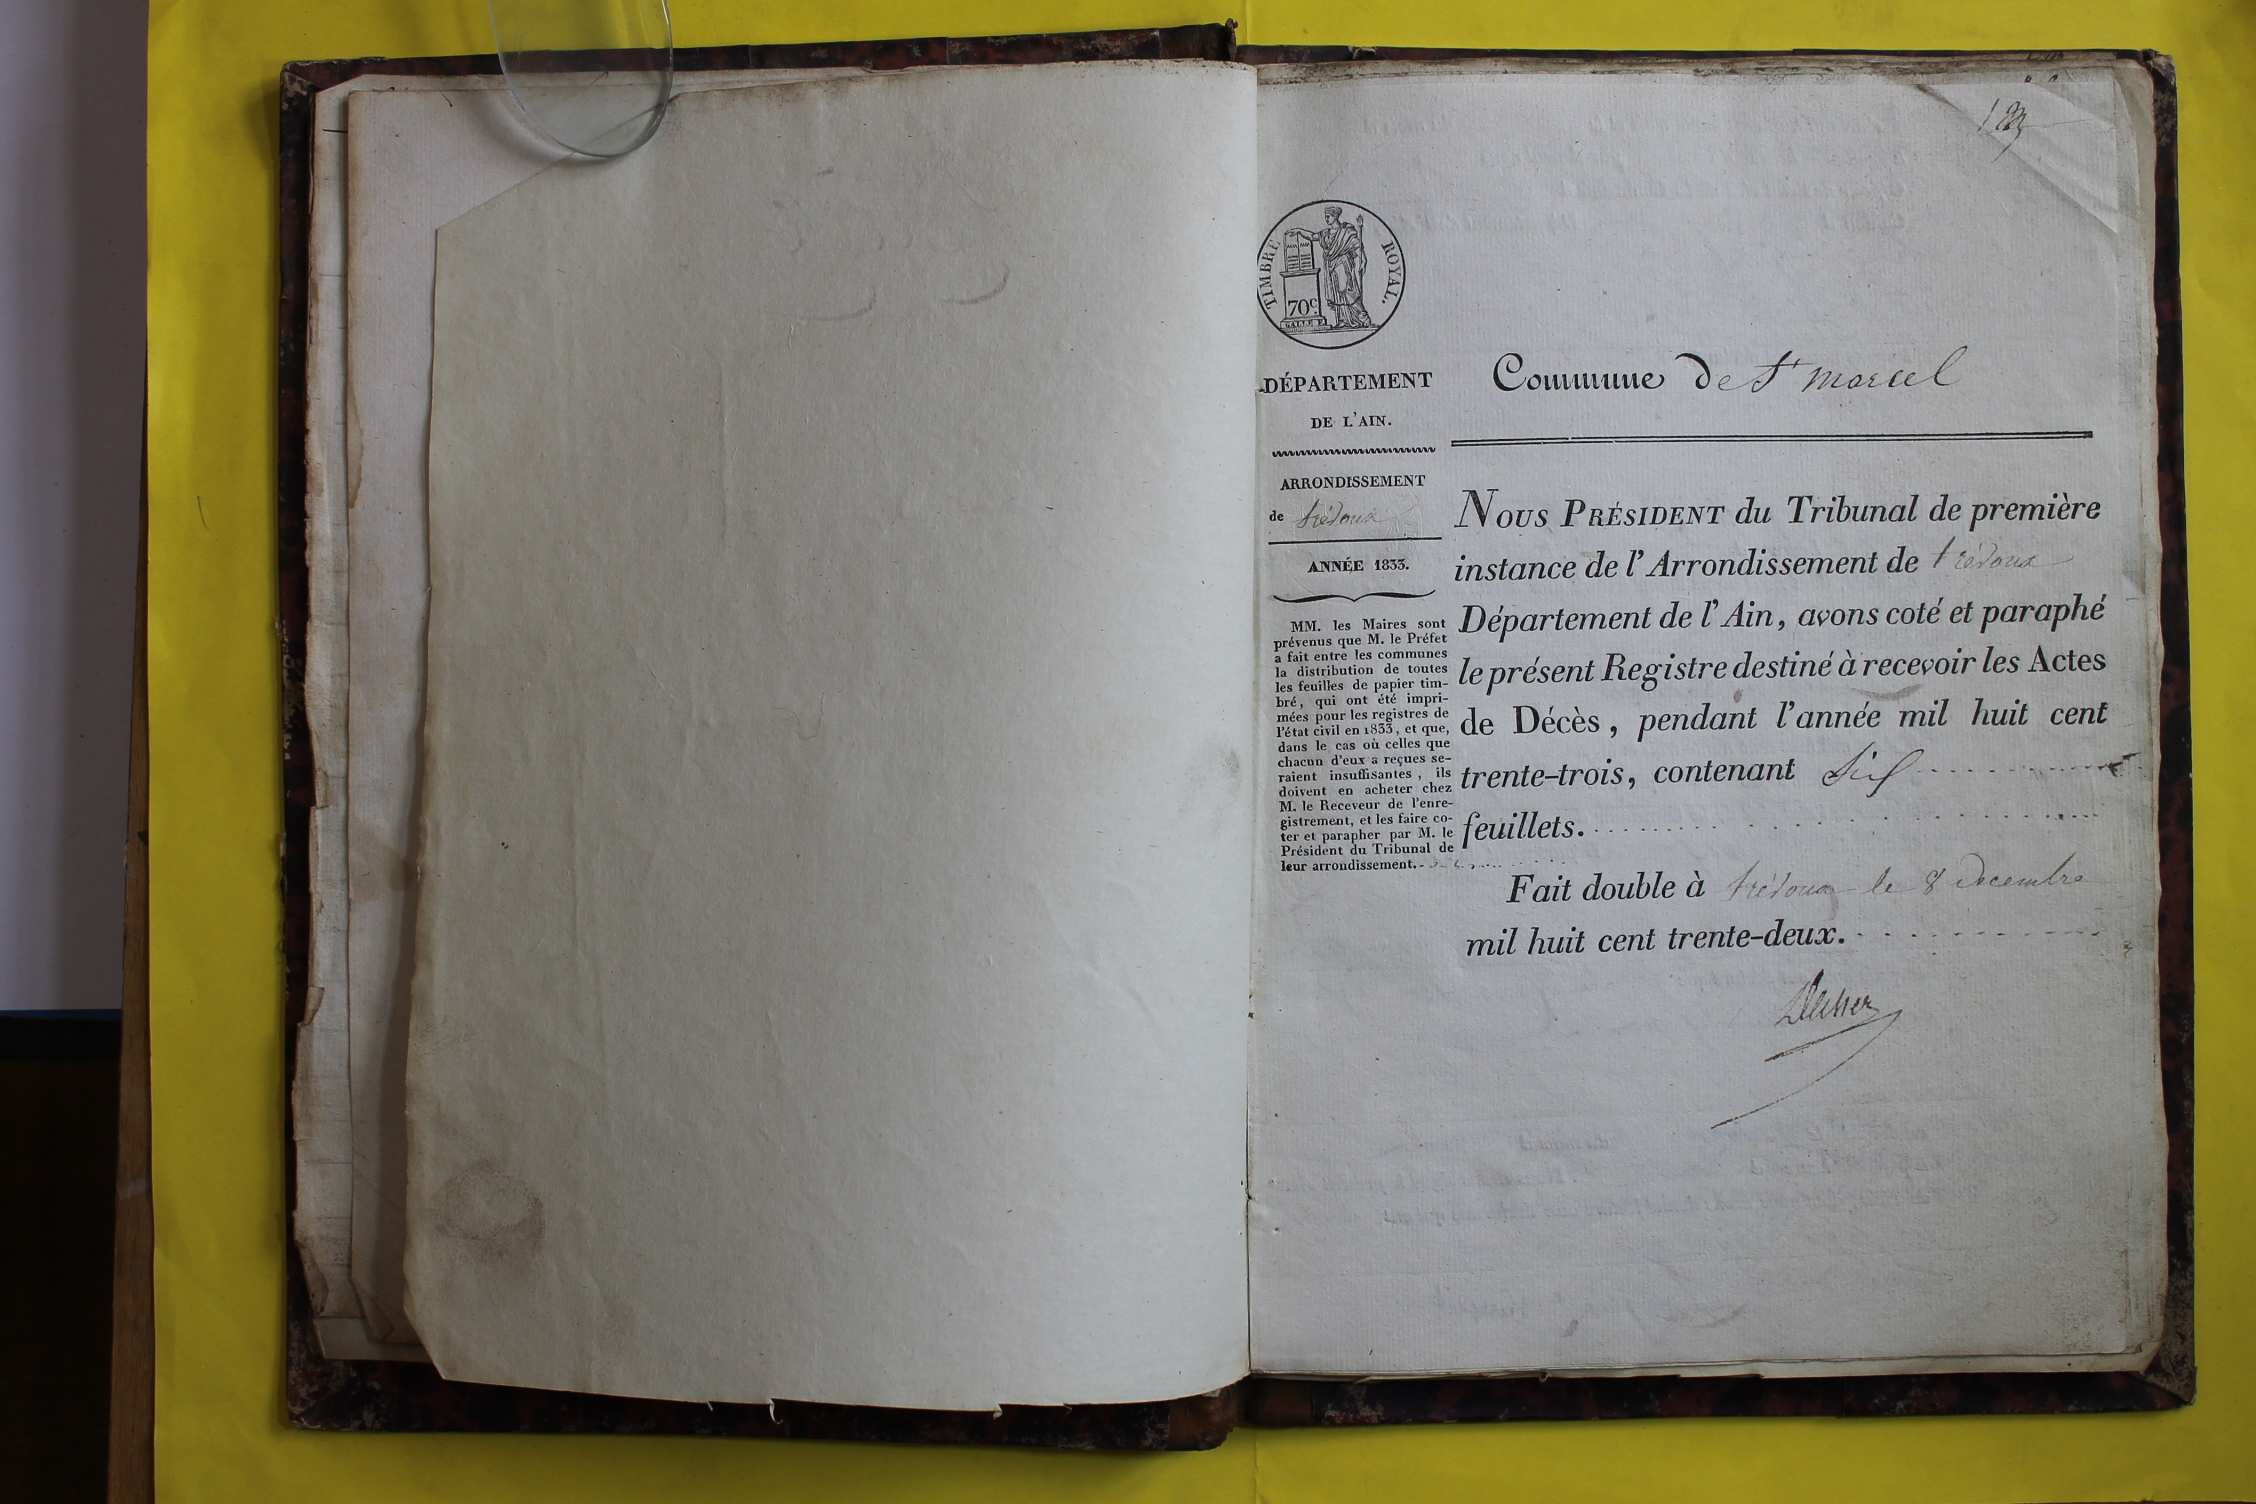 TIMBRE ROYAL.
70c.
DÉPARTEMENT
DE L'AIN.
ARRONDISSEMENT
de trévoux
ANNÉE 1833.
MM. les Maires sont
prévenus que M. le Préfet
a fait entre les communes
la distribution de toutes
les feuilles de papier tim-
bré, qui ont été impri-
mées pour les registres de
l'état civil en 1833, et que,
dans le cas où celles que
chacun d'eux a reçues se-
raient insuffisantes, ils
doivent en acheter chez
M. le Receveur de l'enre-
gistrement, et les faire co-
ter et parapher par M. le
Président du Tribunal de
leur arrondissement.
Commune de St marcel
NOUS PRÉSIDENT du Tribunal de première
instance de l'Arrondissement de trévoux
Département de l'Ain, avons coté et paraphé
le présent Registre destiné à recevoir les Actes
de Décès, pendant l'année mil huit cent
trente-trois, contenant Six
feuillets.
Fait double à trévoux le 8 decembre
mil huit cent trente-deux.